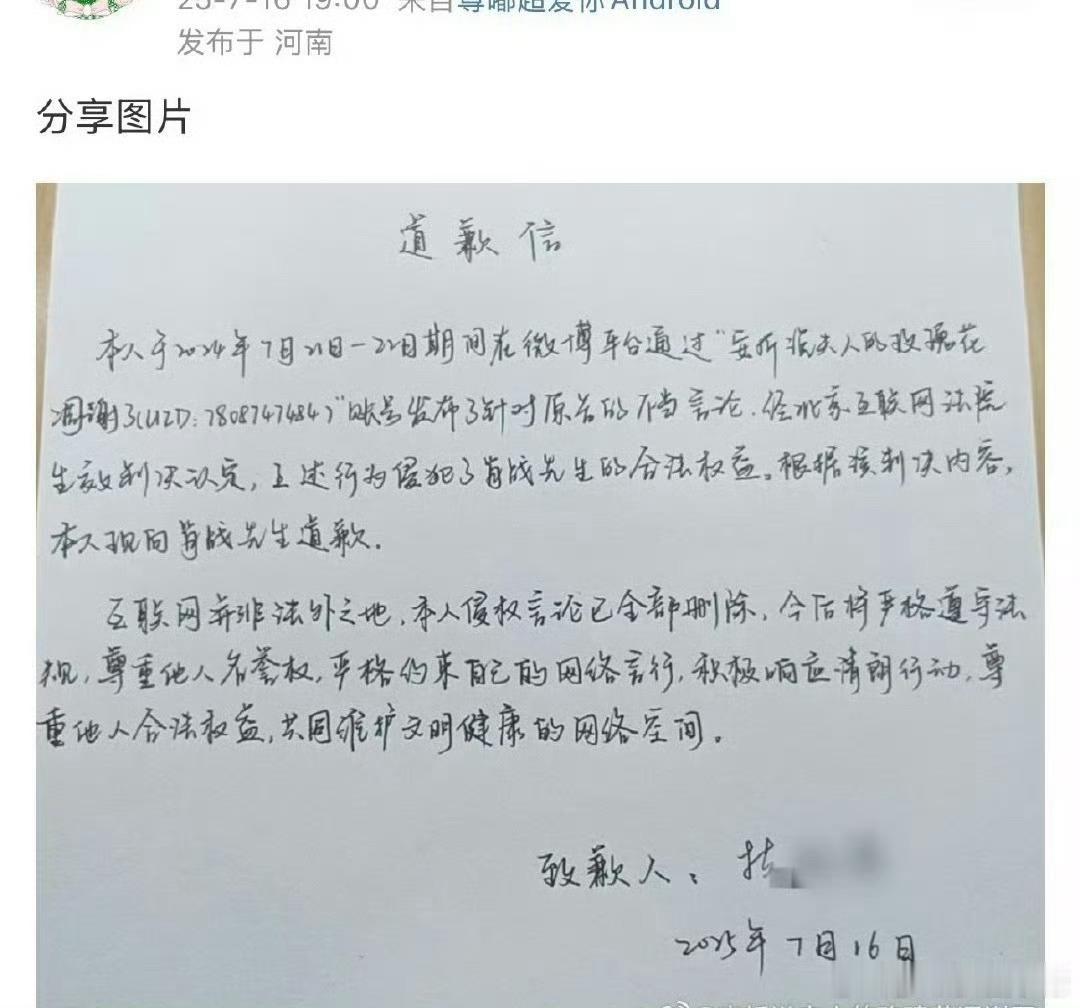 25-7-16 19:00 来自尊嘟超爱你Android
发布于 河南
分享图片
道歉信
本人于2024年7月21日-22日期间在微博平台通过"安折流夫人的玫瑰花
凋谢了(UID:7808747484)"账号发布了针对原告的不当言论,经北京互联网法院
生效判决认定,上述行为侵犯了肖战先生的合法权益。根据该判决内容,
本人现向肖战先生道歉。
互联网并非法外之地,本人侵权言论已全部删除,今后将严格遵守法
规,尊重他人名誉权,严格约束自己的网络言行,积极响应清朗行动,尊
重他人合法权益,共同维护文明健康的网络空间。
致歉人:
2025年7月16日